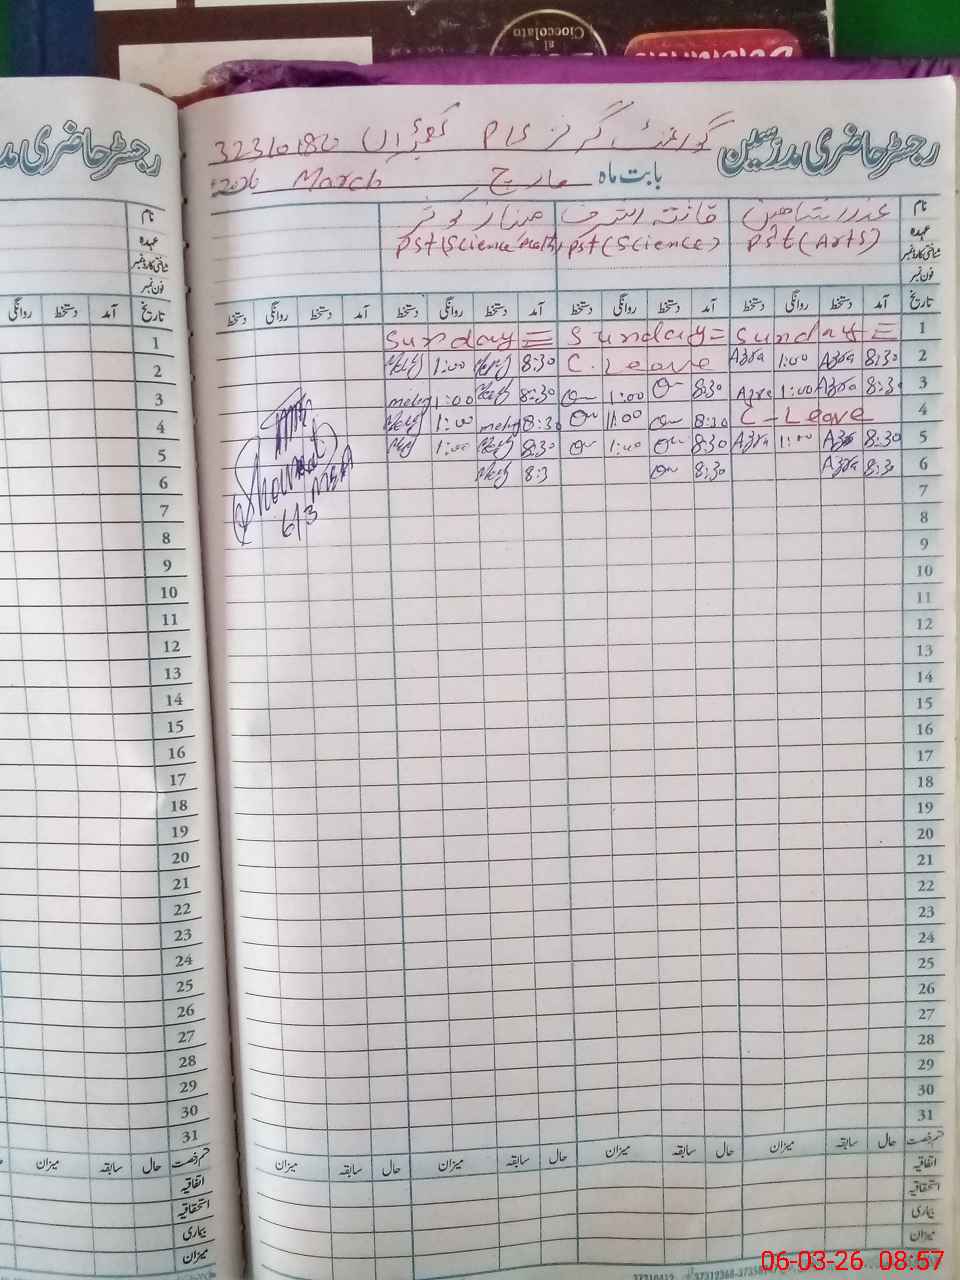 Cioccolato
al
رجسٹر حاضری مدرسین
گورنمنٹ گرلز
32310180
بابت ماہ مارچ March 2026
نام عذرا شاہین
عہدہ Pst (Arts) Pst (Science) Pst (Science Math)
شناختی کارڈ نمبر
فون نمبر
تاریخ آمد دستخط روانگی دستخط آمد دستخط روانگی دستخط آمد دستخط روانگی دستخط آمد دستخط روانگی دستخط
1 Sunday = Sunday = Sunday =
2 8:30 Azra 1:00 Azra C. Leave 8:30 1:00
3 8:30 Azra 1:00 Azra 8:30 1:00 8:30 1:00
4 C - Leave 8:30 1:00 8:30 1:00
5 8:30 Azra 1:00 Azra 8:30 1:00 8:30 1:00
6 8:30 Azra 8:30 8:3
6/3
7
8
9
10
11
12
13
14
15
16
17
18
19
20
21
22
23
24
25
26
27
28
29
30
31
قسم رخصت حال سابقہ میزان حال سابقہ میزان حال سابقہ میزان حال سابقہ میزان
اتفاقیہ
استحقاقیہ
بیماری
میزان
رجسٹر حاضری مد
نام
عہدہ
شناختی کارڈ نمبر
فون نمبر
تاریخ آمد دستخط روانگی
1
2
3
4
5
6
7
8
9
10
11
12
13
14
15
16
17
18
19
20
21
22
23
24
25
26
27
28
29
30
31
قسم رخصت حال سابقہ میزان
اتفاقیہ
استحقاقیہ
بیماری
میزان
06-03-26 08:57